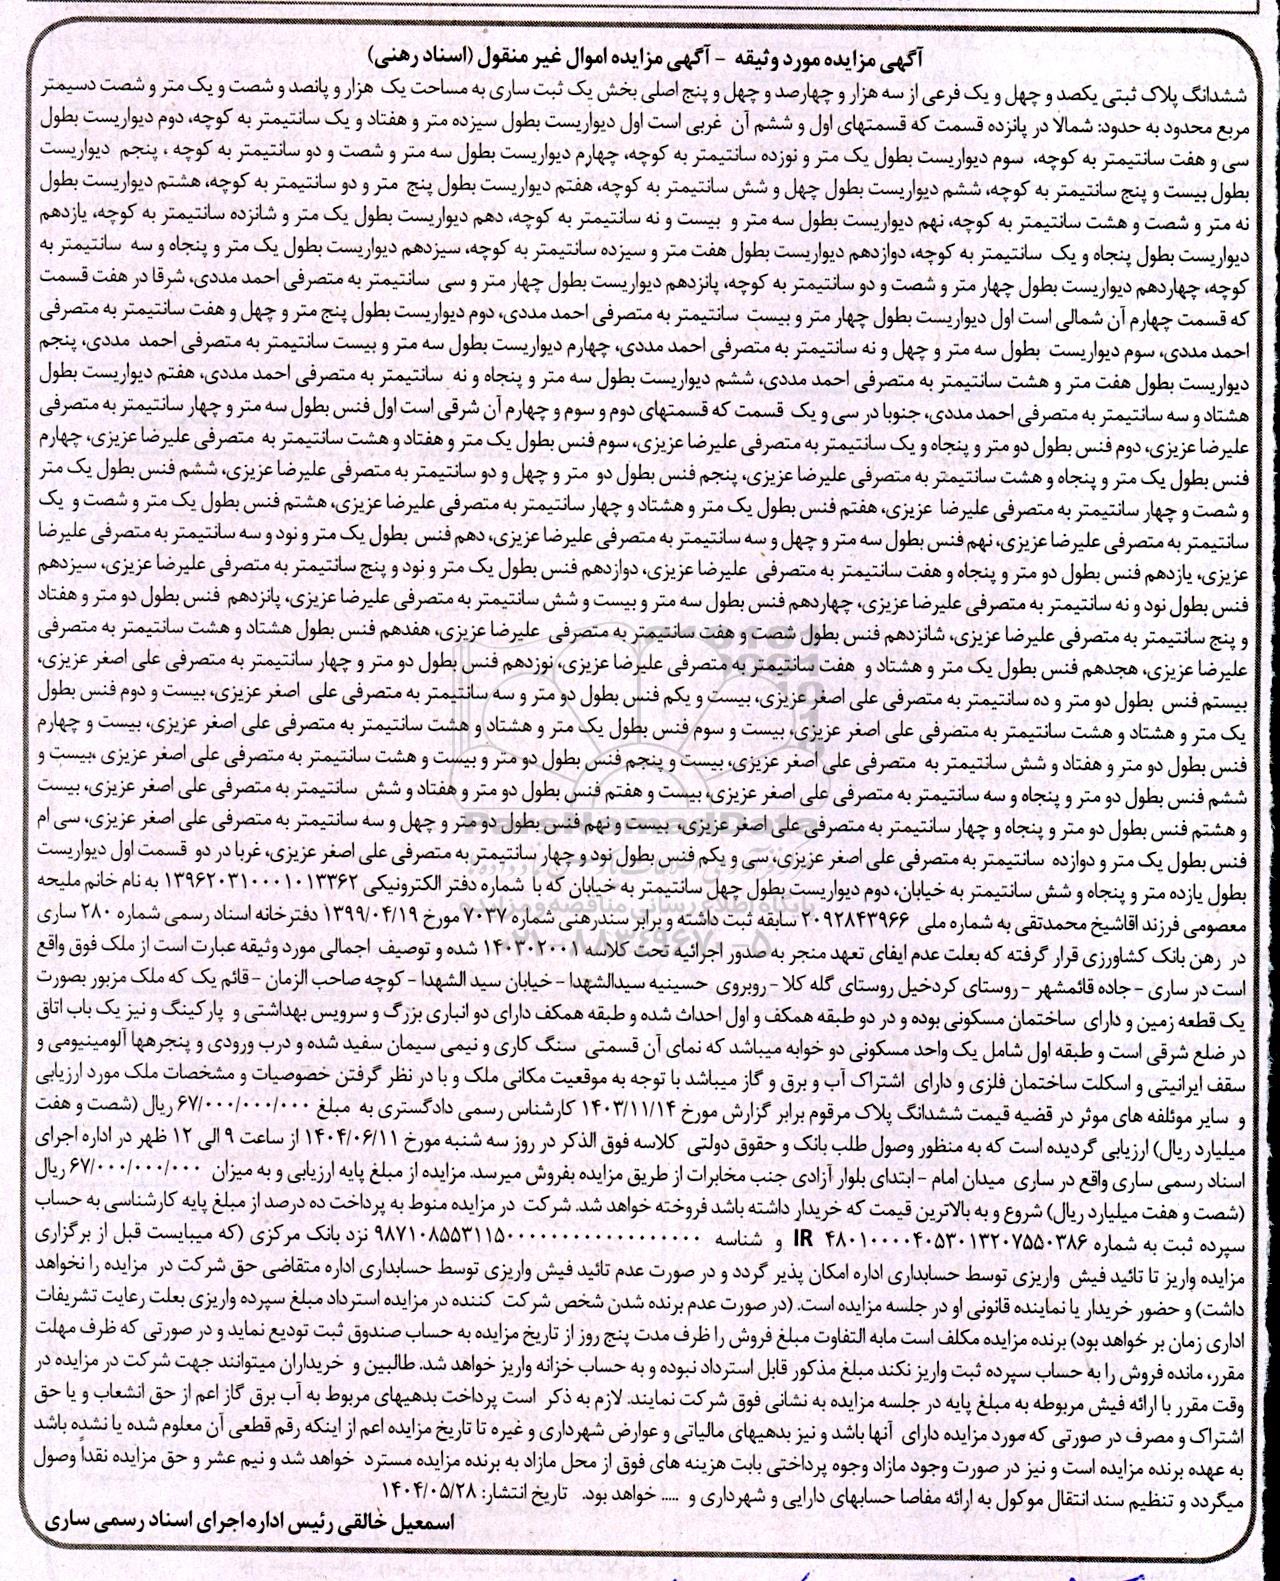 آگهی مزایده مورد وثیقه - آگهی مزایده اموال غیر منقول (اسناد رهنی)
ششدانگ پلاک ثبتی یکصد و چهل و یک فرعی از سه هزار و چهارصد و چهل و پنج اصلی بخش یک ثبت ساری به مساحت یک هزار و پانصد و شصت و یک متر و شصت دسیمتر
مربع محدود به حدود: شمالا در پانزده قسمت که قسمتهای اول و ششم آن غربی است اول دیواریست بطول سیزده متر و هفتاد و یک سانتیمتر به کوچه، دوم دیواریست بطول
سی و هفت سانتیمتر به کوچه، سوم دیواریست بطول یک متر و نوزده سانتیمتر به کوچه، چهارم دیواریست بطول سه متر و شصت و دو سانتیمتر به کوچه ، پنجم دیواریست
بطول بیست و پنج سانتیمتر به کوچه، ششم دیواریست بطول چهل و شش سانتیمتر به کوچه، هفتم دیواریست بطول پنج متر و دو سانتیمتر به کوچه، هشتم دیواریست بطول
نه متر و شصت و هشت سانتیمتر به کوچه، نهم دیواریست بطول سه متر و بیست و نه سانتیمتر به کوچه، دهم دیواریست بطول یک متر و شانزده سانتیمتر به کوچه، یازدهم
دیواریست بطول پنجاه و یک سانتیمتر به کوچه، دوازدهم دیواریست بطول هفت متر و سیزده سانتیمتر به کوچه، سیزدهم دیواریست بطول یک متر و پنجاه و سه سانتیمتر به
کوچه، چهاردهم دیواریست بطول چهار متر و شصت و دو سانتیمتر به کوچه، پانزدهم دیواریست بطول چهار متر و سی سانتیمتر به متصرفی احمد مددی، شرقا در هفت قسمت
که قسمت چهارم آن شمالی است اول دیواریست بطول چهار متر و بیست سانتیمتر به متصرفی احمد مددی، دوم دیواریست بطول پنج متر و چهل و هفت سانتیمتر به متصرفی
احمد مددی، سوم دیواریست بطول سه متر و چهل و نه سانتیمتر به متصرفی احمد مددی، چهارم دیواریست بطول سه متر و بیست سانتیمتر به متصرفی احمد مددی، پنجم
دیواریست بطول هفت متر و هشت سانتیمتر به متصرفی احمد مددی، ششم دیواریست بطول سه متر و پنجاه و نه سانتیمتر به متصرفی احمد مددی، هفتم دیواریست بطول
هشتاد و سه سانتیمتر به متصرفی احمد مددی، جنوبا در سی و یک قسمت که قسمتهای دوم و سوم و چهارم آن شرقی است اول فنس بطول سه متر و چهار سانتیمتر به متصرفی
علیرضا عزیزی، دوم فنس بطول دو متر و پنجاه و یک سانتیمتر به متصرفی علیرضا عزیزی، سوم فنس بطول یک متر و هفتاد و هشت سانتیمتر به متصرفی علیرضا عزیزی، چهارم
فنس بطول یک متر و پنجاه و هشت سانتیمتر به متصرفی علیرضا عزیزی، پنجم فنس بطول دو متر و چهل و دو سانتیمتر به متصرفی علیرضا عزیزی، ششم فنس بطول یک متر
و شصت و چهار سانتیمتر به متصرفی علیرضا عزیزی، هفتم فنس بطول یک متر و هشتاد و چهار سانتیمتر به متصرفی علیرضا عزیزی، هشتم فنس بطول یک متر و شصت و یک
سانتیمتر به متصرفی علیرضا عزیزی، نهم فنس بطول سه متر و چهل و سه سانتیمتر به متصرفی علیرضا عزیزی، دهم فنس بطول یک متر و نود و سه سانتیمتر به متصرفی علیرضا
عزیزی، یازدهم فنس بطول دو متر و پنجاه و هفت سانتیمتر به متصرفی علیرضا عزیزی، دوازدهم فنس بطول یک متر و نود و پنج سانتیمتر به متصرفی علیرضا عزیزی، سیزدهم
فنس بطول نود و نه سانتیمتر به متصرفی علیرضا عزیزی، چهاردهم فنس بطول سه متر و بیست و شش سانتیمتر به متصرفی علیرضا عزیزی، پانزدهم فنس بطول دو متر و هفتاد
و پنج سانتیمتر به متصرفی علیرضا عزیزی، شانزدهم فنس بطول شصت و هفت سانتیمتر به متصرفی علیرضا عزیزی، هفدهم فنس بطول هشتاد و هشت سانتیمتر به متصرفی
علیرضا عزیزی، هجدهم فنس بطول یک متر و هشتاد و هفت سانتیمتر به متصرفی علیرضا عزیزی، نوزدهم فنس بطول دو متر و چهار سانتیمتر به متصرفی علی اصغر عزیزی،
بیستم فنس بطول دو متر و ده سانتیمتر به متصرفی علی اصغر عزیزی، بیست و یکم فنس بطول دو متر و سه سانتیمتر به متصرفی علی اصغر عزیزی، بیست و دوم فنس بطول
یک متر و هشتاد و هشت سانتیمتر به متصرفی علی اصغر عزیزی، بیست و سوم فنس بطول یک متر و هشتاد و هشت سانتیمتر به متصرفی علی اصغر عزیزی، بیست و چهارم
فنس بطول دو متر و هفتاد و شش سانتیمتر به متصرفی علی اصغر عزیزی، بیست و پنجم فنس بطول دو متر و بیست و هشت سانتیمتر به متصرفی علی اصغر عزیزی ،بیست و
ششم فنس بطول دو متر و پنجاه و سه سانتیمتر به متصرفی علی اصغر عزیزی، بیست و هفتم فنس بطول دو متر و هفتاد و شش سانتیمتر به متصرفی علی اصغر عزیزی، بیست
و هشتم فنس بطول دو متر و پنجاه و چهار سانتیمتر به متصرفی علی اصغر عزیزی، بیست و نهم فنس بطول دو متر و چهل و سه سانتیمتر به متصرفی علی اصغر عزیزی، سی ام
فنس بطول یک متر و دوازده سانتیمتر به متصرفی علی اصغر عزیزی، سی و یکم فنس بطول نود و چهار سانتیمتر به متصرفی علی اصغر عزیزی، غربا در دو قسمت اول دیواریست
بطول یازده متر و پنجاه و شش سانتیمتر به خیابان، دوم دیواریست بطول چهل سانتیمتر به خیابان که با شماره دفتر الکترونیکی ۱۳۹۶۲۰۳۱۰۰۰۱۰۱۳۳۶۲ به نام خانم ملیحه
معصومی فرزند اقاشیخ محمدتقی به شماره ملی ۲۰۹۲۸۴۳۹۶۶ سابقه ثبت داشته و برابر سند رهنی شماره ۷۰۳۷ مورخ ۱۳۹۹/۰۴/۱۹ دفترخانه اسناد رسمی شماره ۲۸۰ ساری
در رهن بانک کشاورزی قرار گرفته که بعلت عدم ایفای تعهد منجر به صدور اجرائیه تحت کلاسه ۱۴۰۳۰۲۰۰۱ شده و توصیف اجمالی مورد وثیقه عبارت است از ملک فوق واقع
است در ساری - جاده قائمشهر - روستای کردخیل روستای گله کلا - روبروی حسینیه سیدالشهدا - خیابان سید الشهدا - کوچه صاحب الزمان - قائم یک که ملک مزبور بصورت
یک قطعه زمین و دارای ساختمان مسکونی بوده و در دو طبقه همکف و اول احداث شده و طبقه همکف دارای دو انباری بزرگ و سرویس بهداشتی و پارکینگ و نیز یک باب اتاق
در ضلع شرقی است و طبقه اول شامل یک واحد مسکونی دو خوابه میباشد که نمای آن قسمتی سنگ کاری و نیمی سیمان سفید شده و درب ورودی و پنجرهها آلومینیومی و
سقف ایرانیتی و اسکلت ساختمان فلزی و دارای اشتراک آب و برق و گاز میباشد با توجه به موقعیت مکانی ملک و با در نظر گرفتن خصوصیات و مشخصات ملک مورد ارزیابی
و سایر موئلفه های موثر در قضیه قیمت ششدانگ پلاک مرقوم برابر گزارش مورخ ۱۴۰۳/۱۱/۱۴ کارشناس رسمی دادگستری به مبلغ ۶۷/۰۰۰/۰۰۰/۰۰۰ ریال (شصت و هفت
میلیارد ریال) ارزیابی گردیده است که به منظور وصول طلب بانک و حقوق دولتی کلاسه فوق الذکر در روز سه شنبه مورخ ۱۴۰۴/۰۶/۱۱ از ساعت ۹ الی ۱۲ ظهر در اداره اجرای
اسناد رسمی ساری واقع در ساری میدان امام - ابتدای بلوار آزادی جنب مخابرات از طریق مزایده بفروش میرسد. مزایده از مبلغ پایه ارزیابی و به میزان ۶۷/۰۰۰/۰۰۰/۰۰۰ ریال
(شصت و هفت میلیارد ریال) شروع و به بالاترین قیمت که خریدار داشته باشد فروخته خواهد شد. شرکت در مزایده منوط به پرداخت ده درصد از مبلغ پایه کارشناسی به حساب
سپرده ثبت به شماره IR ۴۸۰۱۰۰۰۰۴۰۵۳۰۱۳۲۰۷۵۵۰۳۸۶ و شناسه ۹۸۷۱۰۸۵۵۳۱۱۵۰۰۰۰۰۰۰۰۰۰۰۰۰۰۰۰۰ نزد بانک مرکزی (که میبایست قبل از برگزاری
مزایده واریز تا تائید فیش واریزی توسط حسابداری اداره امکان پذیر گردد و در صورت عدم تائید فیش واریزی توسط حسابداری اداره متقاضی حق شرکت در مزایده را نخواهد
داشت) و حضور خریدار یا نماینده قانونی او در جلسه مزایده است. (در صورت عدم برنده شدن شخص شرکت کننده در مزایده استرداد مبلغ سپرده واریزی بعلت رعایت تشریفات
اداری زمان بر خواهد بود) برنده مزایده مکلف است مابه التفاوت مبلغ فروش را ظرف مدت پنج روز از تاریخ مزایده به حساب صندوق ثبت تودیع نماید و در صورتی که ظرف مهلت
مقرر، مانده فروش را به حساب سپرده ثبت واریز نکند مبلغ مذکور قابل استرداد نبوده و به حساب خزانه واریز خواهد شد. طالبین و خریداران میتوانند جهت شرکت در مزایده در
وقت مقرر با ارائه فیش مربوطه به مبلغ پایه در جلسه مزایده به نشانی فوق شرکت نمایند. لازم به ذکر است پرداخت بدهیهای مربوط به آب برق گاز اعم از حق انشعاب و یا حق
اشتراک و مصرف در صورتی که مورد مزایده دارای آنها باشد و نیز بدهیهای مالیاتی و عوارض شهرداری و غیره تا تاریخ مزایده اعم از اینکه رقم قطعی آن معلوم شده یا نشده باشد
به عهده برنده مزایده است و نیز در صورت وجود مازاد وجوه پرداختی بابت هزینه های فوق از محل مازاد به برنده مزایده مسترد خواهد شد و نیم عشر و حق مزایده نقداً وصول
میگردد و تنظیم سند انتقال موکول به ارائه مفاصا حسابهای دارایی و شهرداری و ..... خواهد بود. تاریخ انتشار: ۱۴۰۴/۰۵/۲۸
اسمعیل خالقی رئیس اداره اجرای اسناد رسمی ساری
ParsNamadData
پایگاه اطلاع رسانی مناقصه و مزایده